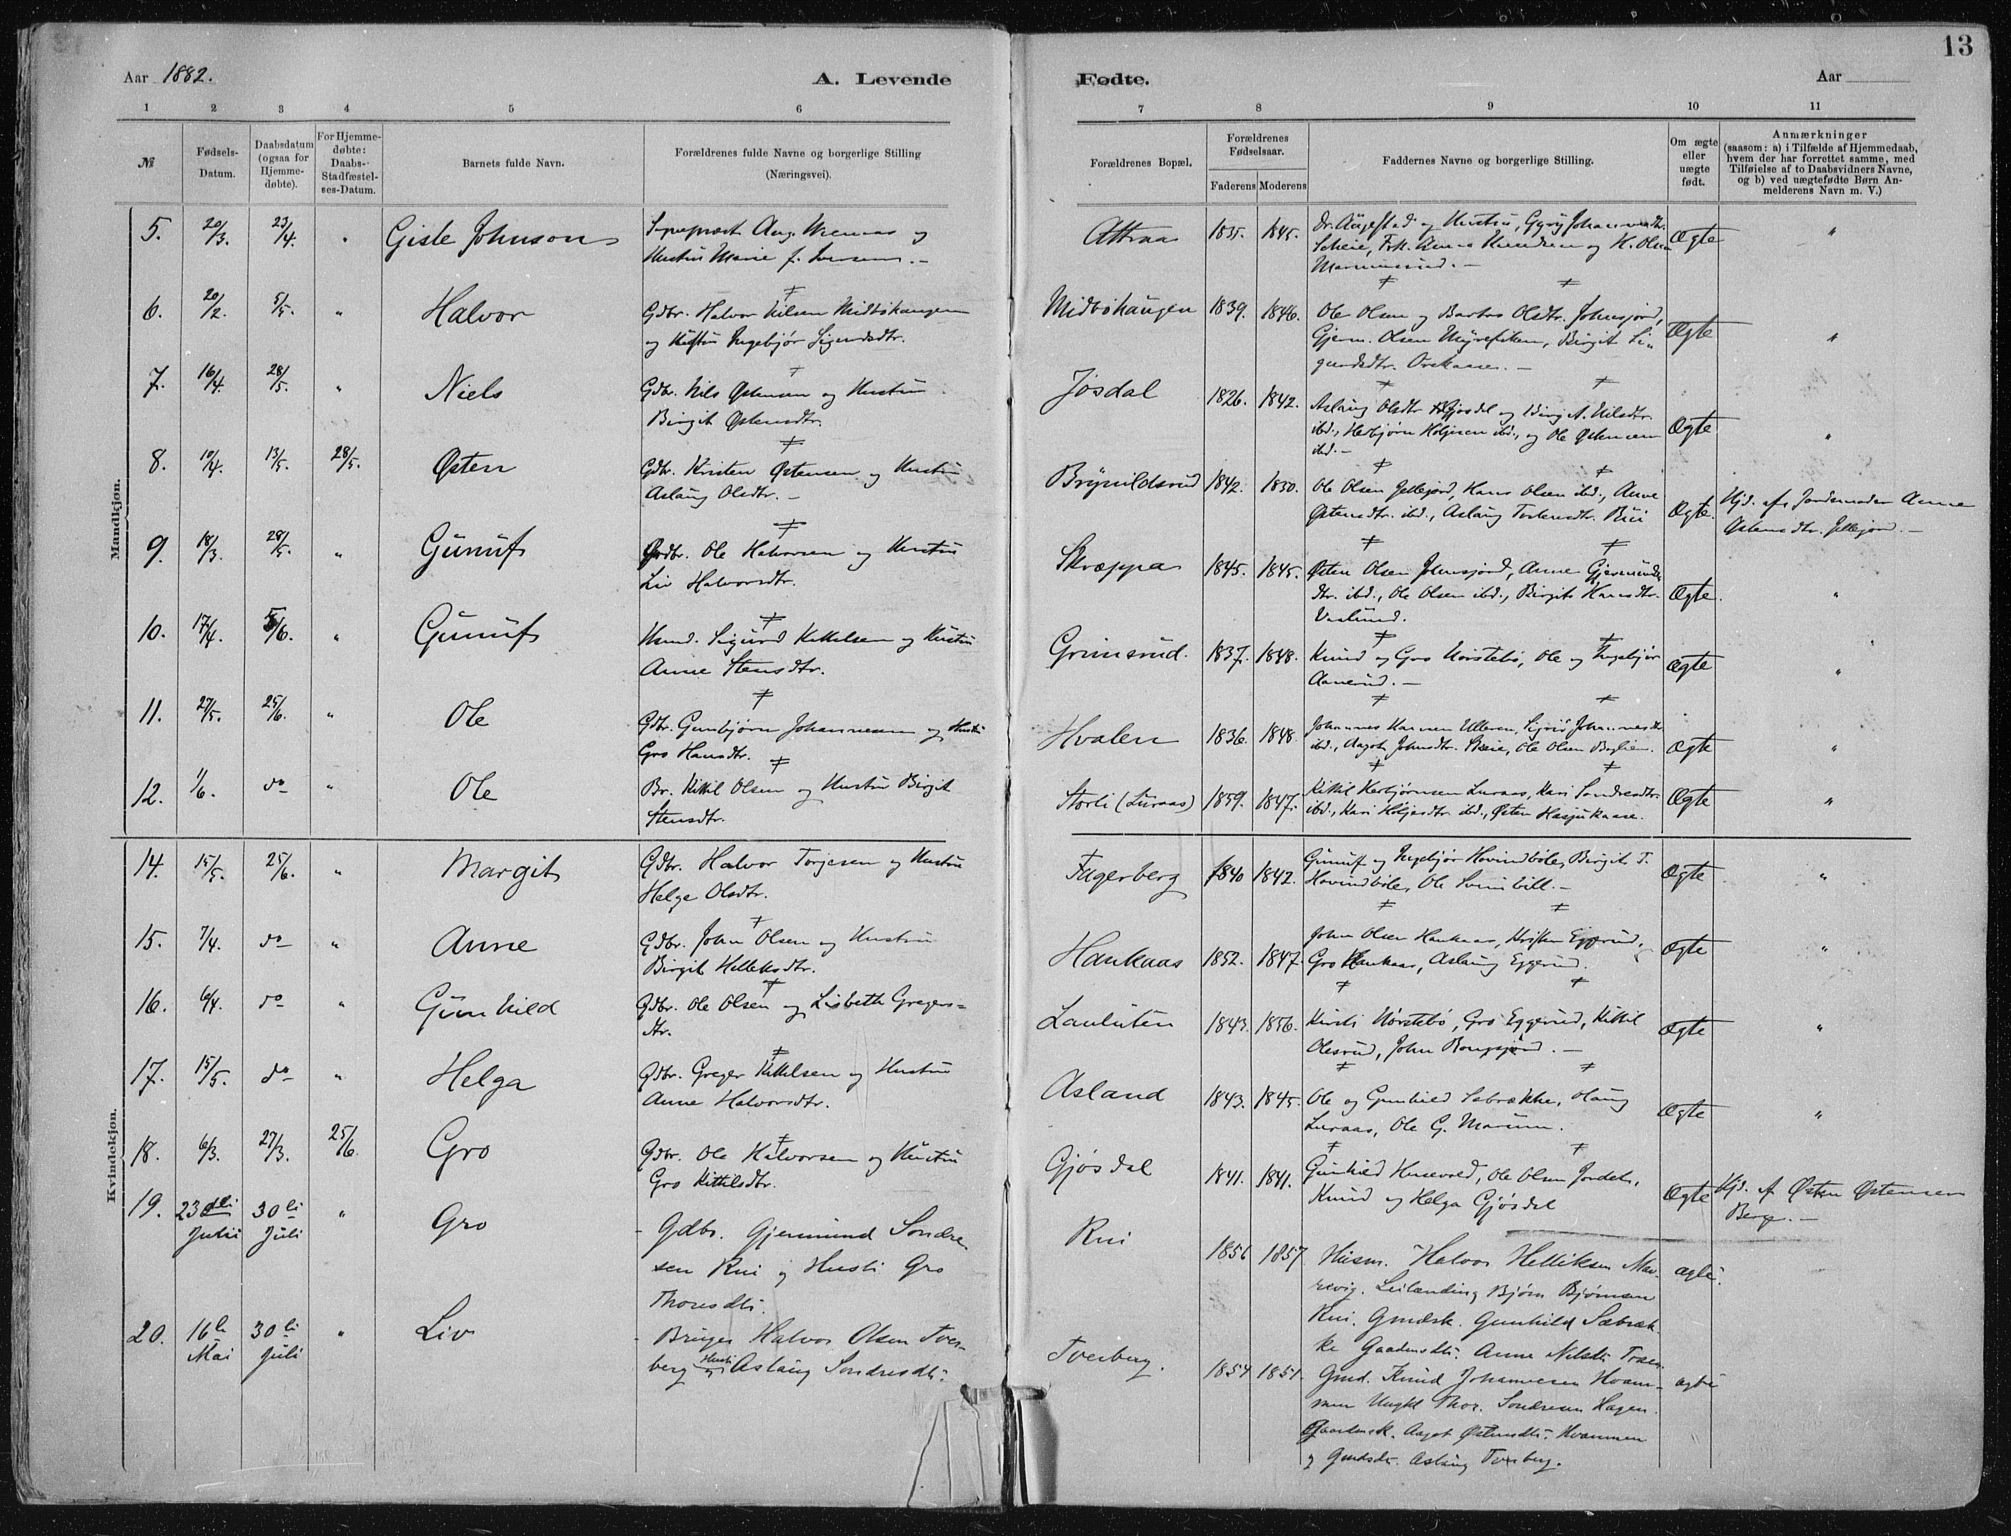 13
Aar 1882.
A. Levende
Fødte.
Aar
1 2 3 4 5 6 7 8 9 10 11
№
Fødsels-
Datum.
Daabsdatum
(ogsaa for
Hjemme-
døbte).
For Hjemme-
døbte:
Daabs-
Stadfæstel-
ses-Datum.
Barnets fulde Navn.
Forældrenes fulde Navne og borgerlige Stilling
(Næringsvei).
Forældrenes Bopæl.
Forældrenes
Fødselsaar.
Faderens Moderens
Faddernes Navne og borgerlige Stilling.
Om ægte
eller
uægte
født.
Anmærkninger
(saasom: a) i Tilfælde af Hjemmedaab,
hvem der har forrettet samme, med
Tilføielse af to Daabsvidners Navne,
og b) ved uægtefødte Børn An-
melderens Navn m. V.)
Mandkjøn.
5. 20/3. 23/4. " Gisle Johnson
Sogneprest Aug. og
Hustru Marie f. Iversen. -
Attraa 1835. 1845.
og Hustru, Johannesdtr.
Frk. Anna og H. Olsen
Ægte "
6. 20/2. 5/5. " Halvor
Gdbr. Halvor Nilsen Midbøhaugen
og Hustru Ingebjør Sigurdsdtr.
Midbøhaugen 1839. 1846.
Ole Olsen og Olsdtr. Johnsjord,
Gjerm. Olsen Birgit Si-
gurdsdtr.
Ægte "
7. 16/4. 28/5. " Niels
Gdbr. Nils Østensen og Hustru
Birgit Østensdtr.
Jøsdal 1826. 1842.
Aslaug Olsdtr. Gjøsdal og Birgit Nilsdtr.
ibd., Herbjørn ibd., og Ole Østensen
ibd. -
Ægte "
8. 10/4. 13/5. 28/5. Østen
Gdbr. Kristen Østensen og Hustru
Aslaug Olsdtr. -
Brynildsrud 1842. 1850.
Ole Olsen Jellejord, Hans Olsen ibd., Anne
Østensdtr. ibd., Aslaug
Ægte. Hjd. af Jordemoder Anne
Østensdtr. Jellejord. -
9. 18/3. 28/5. " Gunuf
Gdbr. Ole Halvorsen og Hustru
Liv Halvorsdtr.
Skræppa 1845. 1845.
Østen Olsen Johnsjord, Anne Gjermunds-
dtr. ibd., Ole Olsen ibd., Birgit Hansdtr.
Ægte. "
10. 17/4. 5/6. " Gunuf
Husmd. Sigurd Kittelsen og Hustru
Anne Stensdtr.
Grimsrud. 1837. 1848.
Knud og Gro Nørstebø, Ole og Ingebjør
Aanerud. -
Ægte "
11. 27/5. 25/6. " Ole
Gdbr. Gunbjørn Johannesen og Hustru
Gro Hansdtr.
Hvalen 1836. 1848.
Johannes Hansen Ulleren, Johannesdtr.
ibd., Aagot Johnsdtr. Ole Olsen
Ægte "
12. 1/6. do " Ole
Br. Kittil Olsen og Hustru Birgit
Stensdtr.
Storli (Luraas) 1859. 1847.
Kittil Herbjørnsen Luraas, Kari Sondresdtr.
ibd., Kari ibd., Østen Hasjukaase.
Ægte "
Kvindekjøn.
14. 15/5. 25/6. " Margit
Gdbr. Halvor Torjesen og Hustru
Helge Olsdtr.
Fagerberg 1840 1842.
Gunuf og Ingebjør Hovindbøle, Birgit T.
Hovindbøle, Ole -
Ægte "
15. 7/4. do " Anne
Gdbr. John Olsen og Hustru
Birgit Helleksdtr.
Haukaas 1852. 1847.
John Olsen Haukaas, Kristen Eggerud,
Gro Haukaas, Aslaug Eggerud.
Ægte "
16. 6/4. do " Gunhild
Gdbr. Ole Olsen og Lisbeth Gregers-
dtr.
Lauluten 1843. 1856.
Nørstebø, Gro Eggerud, Kittil
Olesrud, John -
Ægte "
17. 15/5. do " Helga
Gdbr. Greger Kittilsen og Hustru
Anne Halvorsdtr.
Asland 1843. 1845.
Ole og Gunhild Sæbrække, Olaug
Luraas, Ole G. Marum.
Ægte "
18. 6/3. 27/3. 25/6. Gro
Gdbr. Ole Halvorsen og Hustru
Gro Kittilsdtr.
Gjøsdal 1841. 1841.
Gunhild Husevold, Ole Olsen Jordet,
Knud og Helga Gjøsdal
Ægte Hjd. af Østen Østensen
Berge. -
19. 23 30 Juli " Gro
Gdbr. Gjermund Sondre-
sen Rui og Hustr. Gro
Thoresdtr.
Rui 1856 1857
Husm. Halvor Helliksen Mar-
revig. Leilænding Bjørn Bjørnsen
Rui. Gmdsk. Gunhild Sæbræk-
ke Gaardmdtr. Anne Nilsdtr.
ægte.
20. 16 Mai 30 Juli " Liv
Bruger Halvor Olsen Tver-
berg og Hustr. Aslaug Sondresdtr.
Tverberg. 1854 1851.
Gmd. Knud Johannesen Hvam-
men Ungkl Thor. Sondresen Hagen.
Gaardmsk. Aagot Østensdtr. Hvammen
og Gmdsdtr. Aslaug Tverberg.
ægte